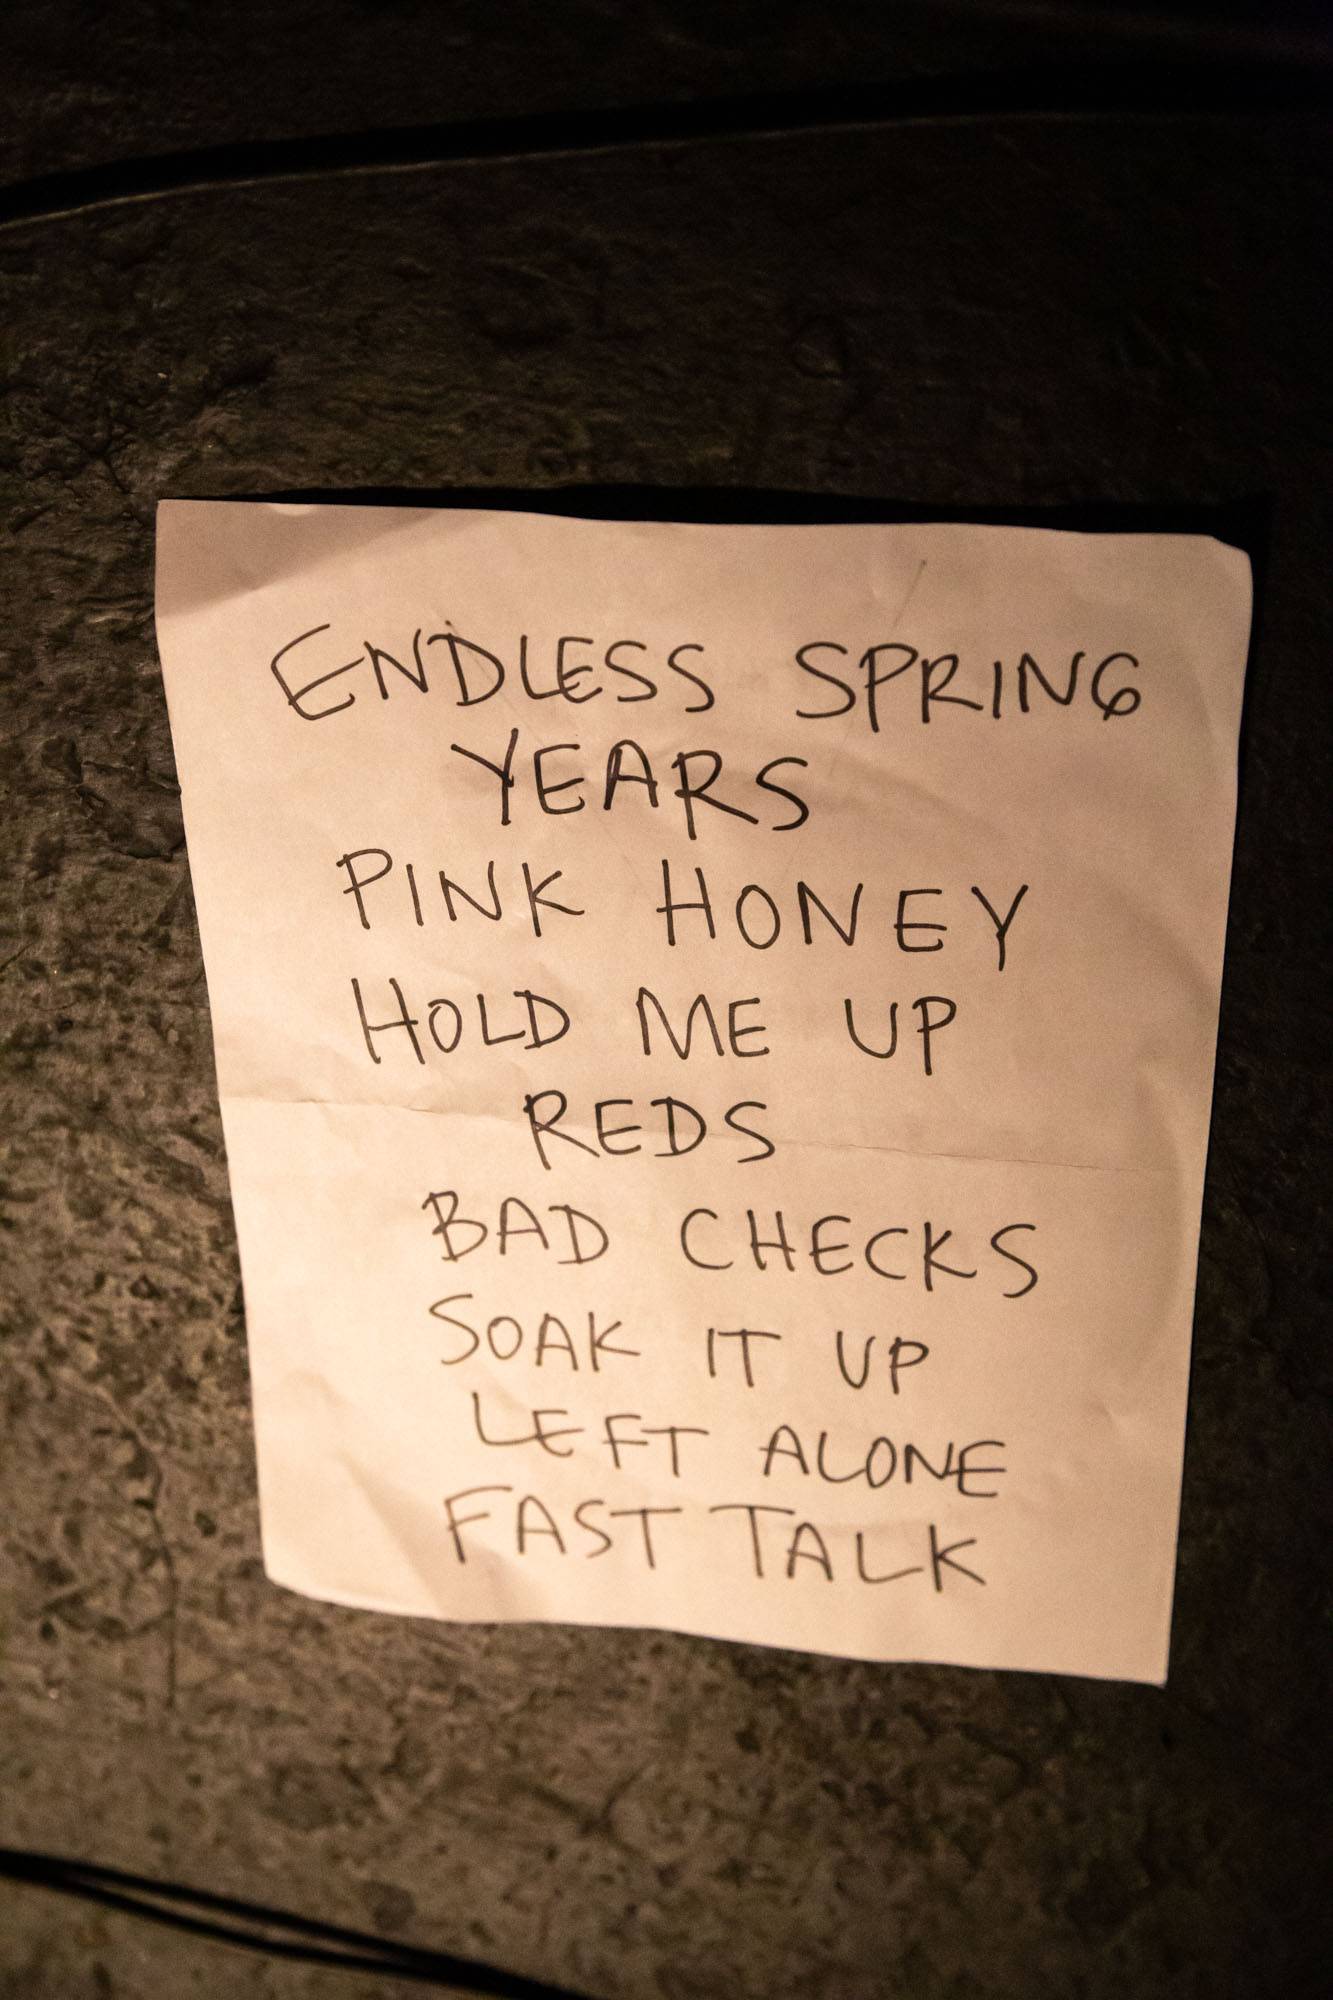 ENDLESS SPRING
YEARS
PINK HONEY
HOLD ME UP
REDS
BAD CHECKS
SOAK IT UP
LEFT ALONE
FAST TALK